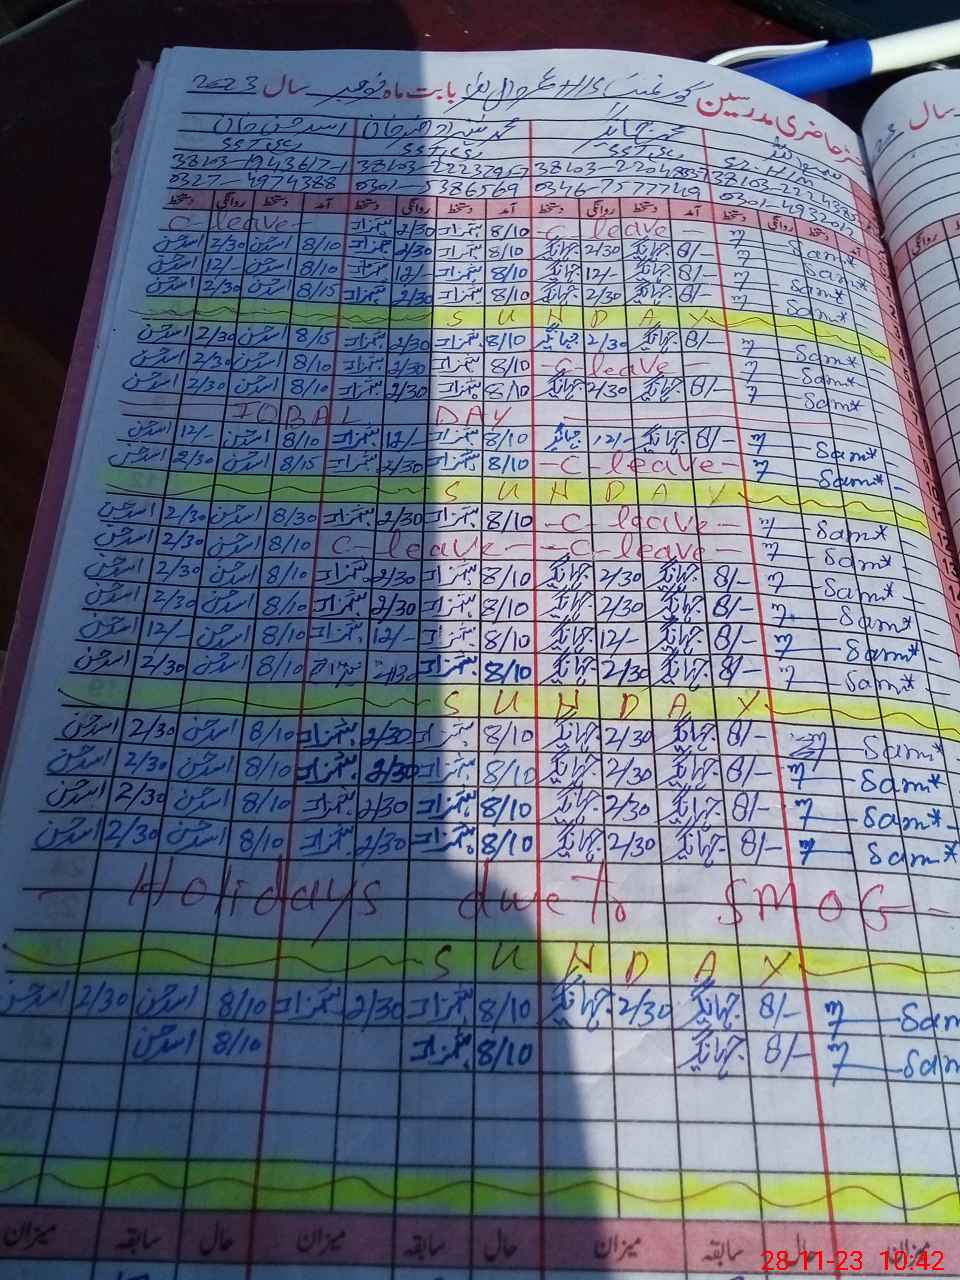 حاضری مدرسین بابت ماہ نومبر سال 2023
سال
محمد جہانگیر محمد شہزاد خان اسد حسن خان
SST SST SST
38103-1943617-1
0327-4974388 0301-5386569 0346-7577749 0301-4932012
دستخط روانگی دستخط آمد دستخط روانگی دستخط آمد دستخط روانگی دستخط آمد دستخط روانگی دستخط
C-leave- شہزاد 2/30 شہزاد 8/10 -C- leave - Sam*
اسد حسن 2/30 اسد حسن 8/10 شہزاد 2/30 شہزاد 8/10 جہانگیر 2/30 جہانگیر 8/- Sam*
اسد حسن 12/- اسد حسن 8/10 شہزاد 12/- شہزاد 8/10 جہانگیر 12/- جہانگیر 8/- Sam*
اسد حسن 2/30 اسد حسن 8/15 شہزاد 2/30 شہزاد 8/10 جہانگیر 2/30 جہانگیر 8/- Sam*
S U N D A Y
اسد حسن 2/30 اسد حسن 8/15 شہزاد 2/30 شہزاد 8/10 جہانگیر 2/30 جہانگیر 8/- Sam*
اسد حسن 2/30 اسد حسن 8/10 شہزاد 2/30 شہزاد 8/10 -C- leave - Sam*
اسد حسن 2/30 اسد حسن 8/10 شہزاد 2/30 شہزاد 8/10 جہانگیر 2/30 جہانگیر 8/- Sam*
IQBAL DAY
اسد حسن 12/- اسد حسن 8/10 شہزاد 12/- شہزاد 8/10 جہانگیر 12/- جہانگیر 8/- Sam*
اسد حسن 2/30 اسد حسن 8/15 شہزاد 2/30 شہزاد 8/10 -C- leave- Sam*
S U N D A Y
اسد حسن 2/30 اسد حسن 8/30 شہزاد 2/30 شہزاد 8/10 -C- leave- Sam*
اسد حسن 2/30 اسد حسن 8/10 C- leave- -C- leave- Sam*
اسد حسن 2/30 اسد حسن 8/10 شہزاد 2/30 شہزاد 8/10 جہانگیر 2/30 جہانگیر 8/- Sam*
اسد حسن 2/30 اسد حسن 8/10 شہزاد 2/30 شہزاد 8/10 جہانگیر 2/30 جہانگیر 8/- Sam*
اسد حسن 12/- اسد حسن 8/10 شہزاد 12/- شہزاد 8/10 جہانگیر 12/- جہانگیر 8/- Sam*
اسد حسن 2/30 اسد حسن 8/10 شہزاد 2/30 شہزاد 8/10 جہانگیر 2/30 جہانگیر 8/- Sam*
S U N D A Y
اسد حسن 2/30 اسد حسن 8/10 شہزاد 2/30 شہزاد 8/10 جہانگیر 2/30 جہانگیر 8/- Sam*
اسد حسن 2/30 اسد حسن 8/10 شہزاد 2/30 شہزاد 8/10 جہانگیر 2/30 جہانگیر 8/- Sam*
اسد حسن 2/30 اسد حسن 8/10 شہزاد 2/30 شہزاد 8/10 جہانگیر 2/30 جہانگیر 8/- Sam*
اسد حسن 2/30 اسد حسن 8/10 شہزاد 2/30 شہزاد 8/10 جہانگیر 2/30 جہانگیر 8/- Sam*
Holidays due to SMOG
S U N D A Y
اسد حسن 2/30 اسد حسن 8/10 شہزاد 2/30 شہزاد 8/10 جہانگیر 2/30 جہانگیر 8/- Sam
اسد حسن 8/10 شہزاد 8/10 جہانگیر 8/- Sam
میزان سابقہ حال میزان سابقہ حال میزان سابقہ حال میزان
28-11-23 10:42